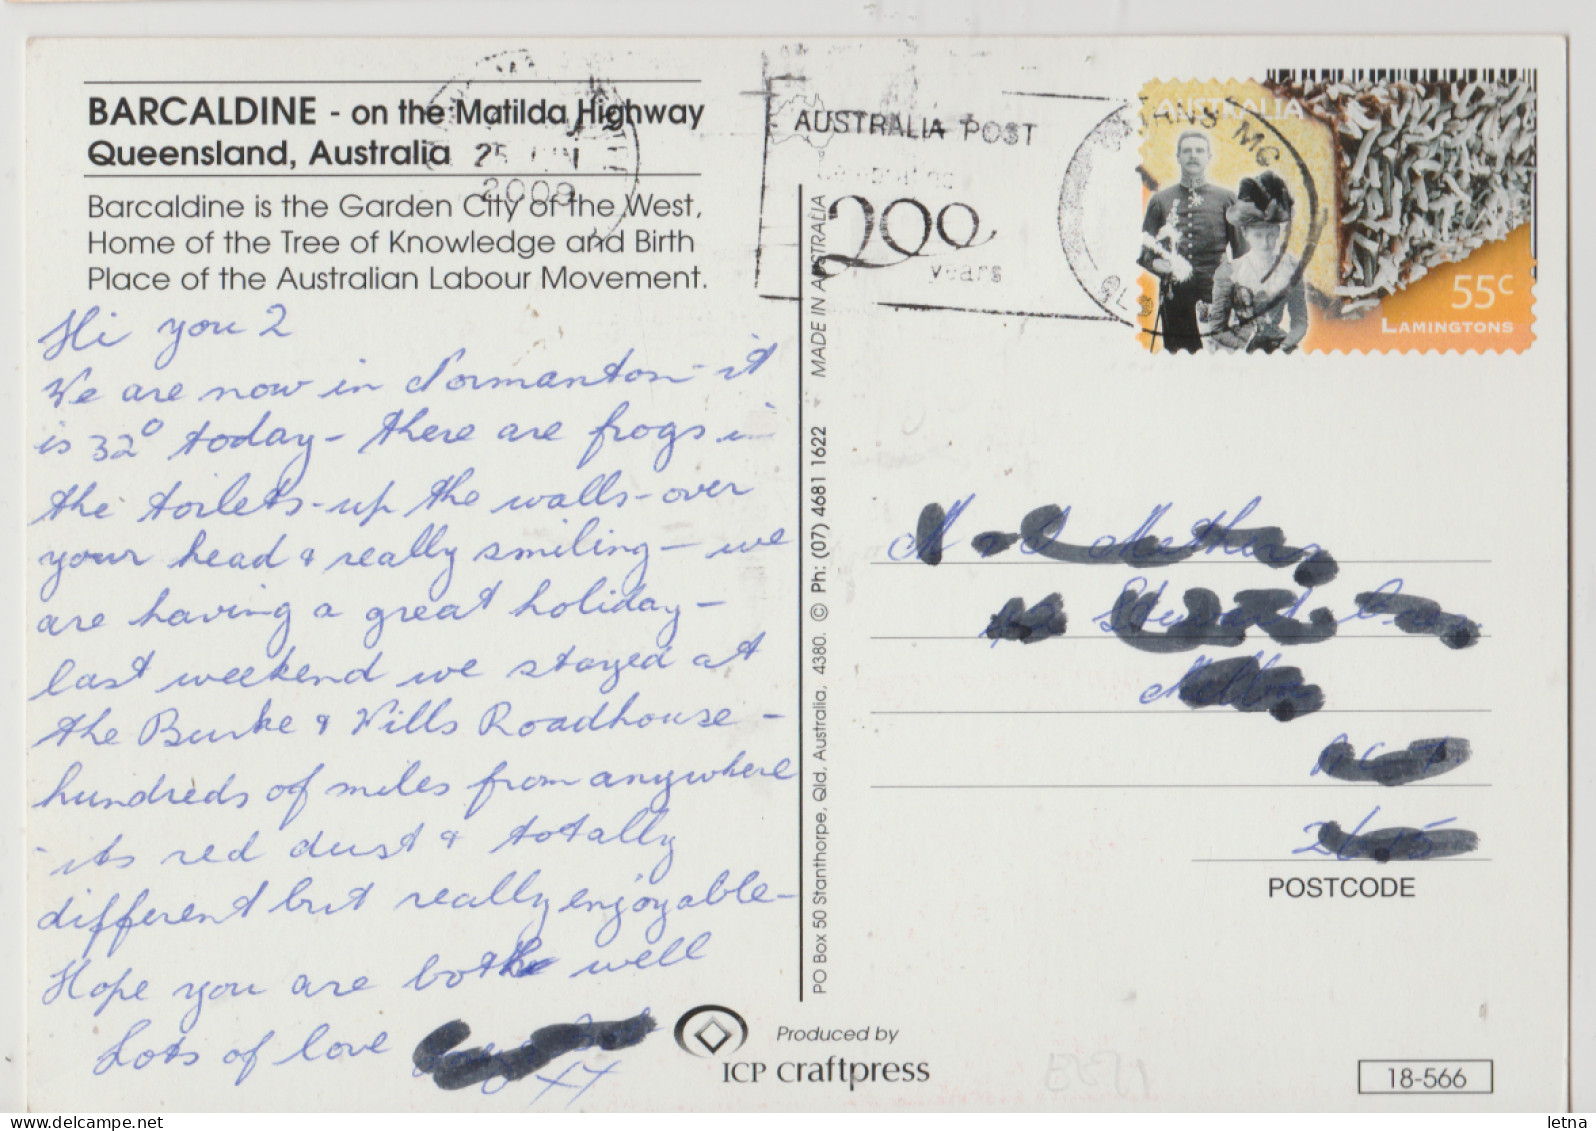 BARCALDINE - on the Matilda Highway
Queensland, Australia
Barcaldine is the Garden City of the West,
Home of the Tree of Knowledge and Birth
Place of the Australian Labour Movement.
Hi you 2
We are now in Normanton - it
is 32° today - there are frogs in
the toilets - up the walls - over
your head & really smiling - we
are having a great holiday -
last weekend we stayed at
the Burke & Wills Roadhouse -
hundreds of miles from anywhere
- its red dust & totally
different but really enjoyable -
Hope you are both well
Lots of love
XX
25 JUN
2009
AUSTRALIA POST
200
years
AUSTRALIA
55c
LAMINGTONS
PO Box 50 Stanthorpe, Qld, Australia, 4380. © Ph: (07) 4681 1622 MADE IN AUSTRALIA
POSTCODE
Produced by
ICP craftpress
18-566
letna